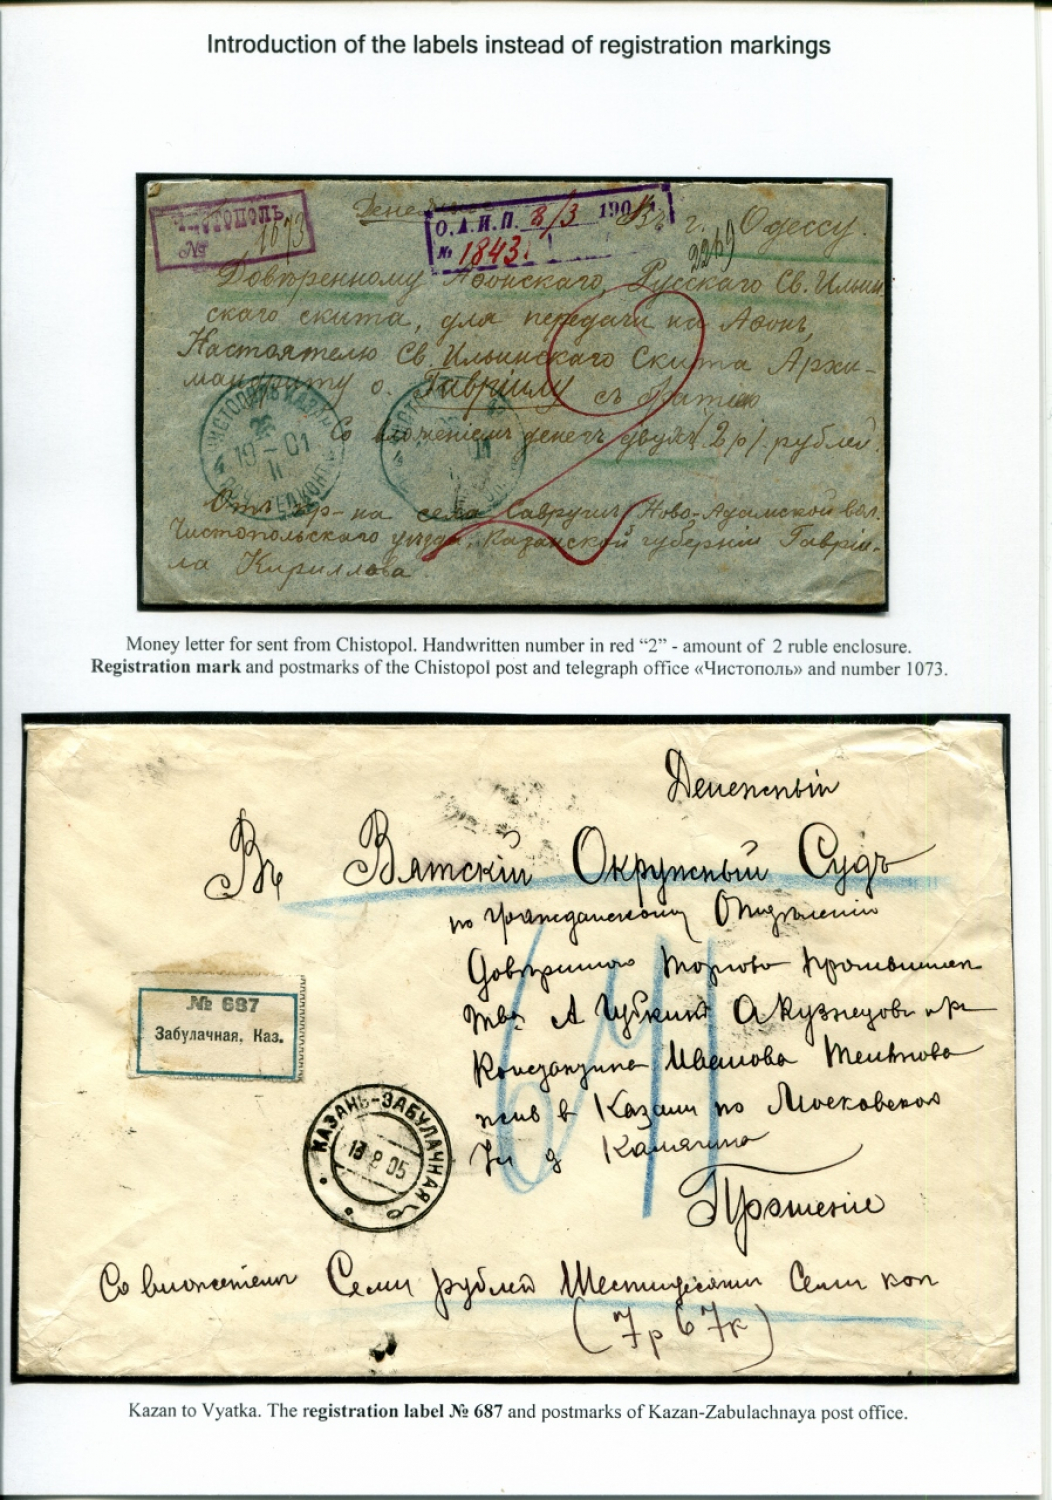 Introduction of the labels instead of registration markings
Чистополь
№ 1073
О.А.И.П. 8/3 1901
№ 1843
Въ г. Одессу.
2269
Довѣренному Аѳонскаго, Русскаго Св. Ильин
скаго скита, для передачи на Аѳонъ,
Настоятелю Св. Ильинскаго Скита Архи-
мандриту о. Гавріилу съ братіею
Со вложеніемъ денегъ двухъ (2 р.) рублей.
2
ЧИСТОПОЛЬ КАЗАН
26
19-01
II
ПОЧ. ТЕЛ. КОН.
ЧИСТОП
II
Отъ кр-на села Саврушъ, Ново-Адамской вол.
Чистопольскаго уѣзда, Казанской губерніи Гаврiи-
ла Кириллова.
Money letter for sent from Chistopol. Handwritten number in red “2” - amount of 2 ruble enclosure.
Registration mark and postmarks of the Chistopol post and telegraph office «Чистополь» and number 1073.
Денежный
Въ Вятскій Окружный Судъ
по гражданскому Отдѣленію
Довѣреннаго Торгово Промышлен
Тва А Губкинъ А Кузнецовъ и Ко
Ивановa
жив в Казани по Московской
Ул д
Прошеніе
№ 687
Забулачная, Каз.
КАЗАНЬ-ЗАБУЛАЧНАЯ
18 8 05
Со вложеніемъ Семи рублей Шестидесяти Семи коп
(7 р 67 к)
Kazan to Vyatka. The registration label № 687 and postmarks of Kazan-Zabulachnaya post office.